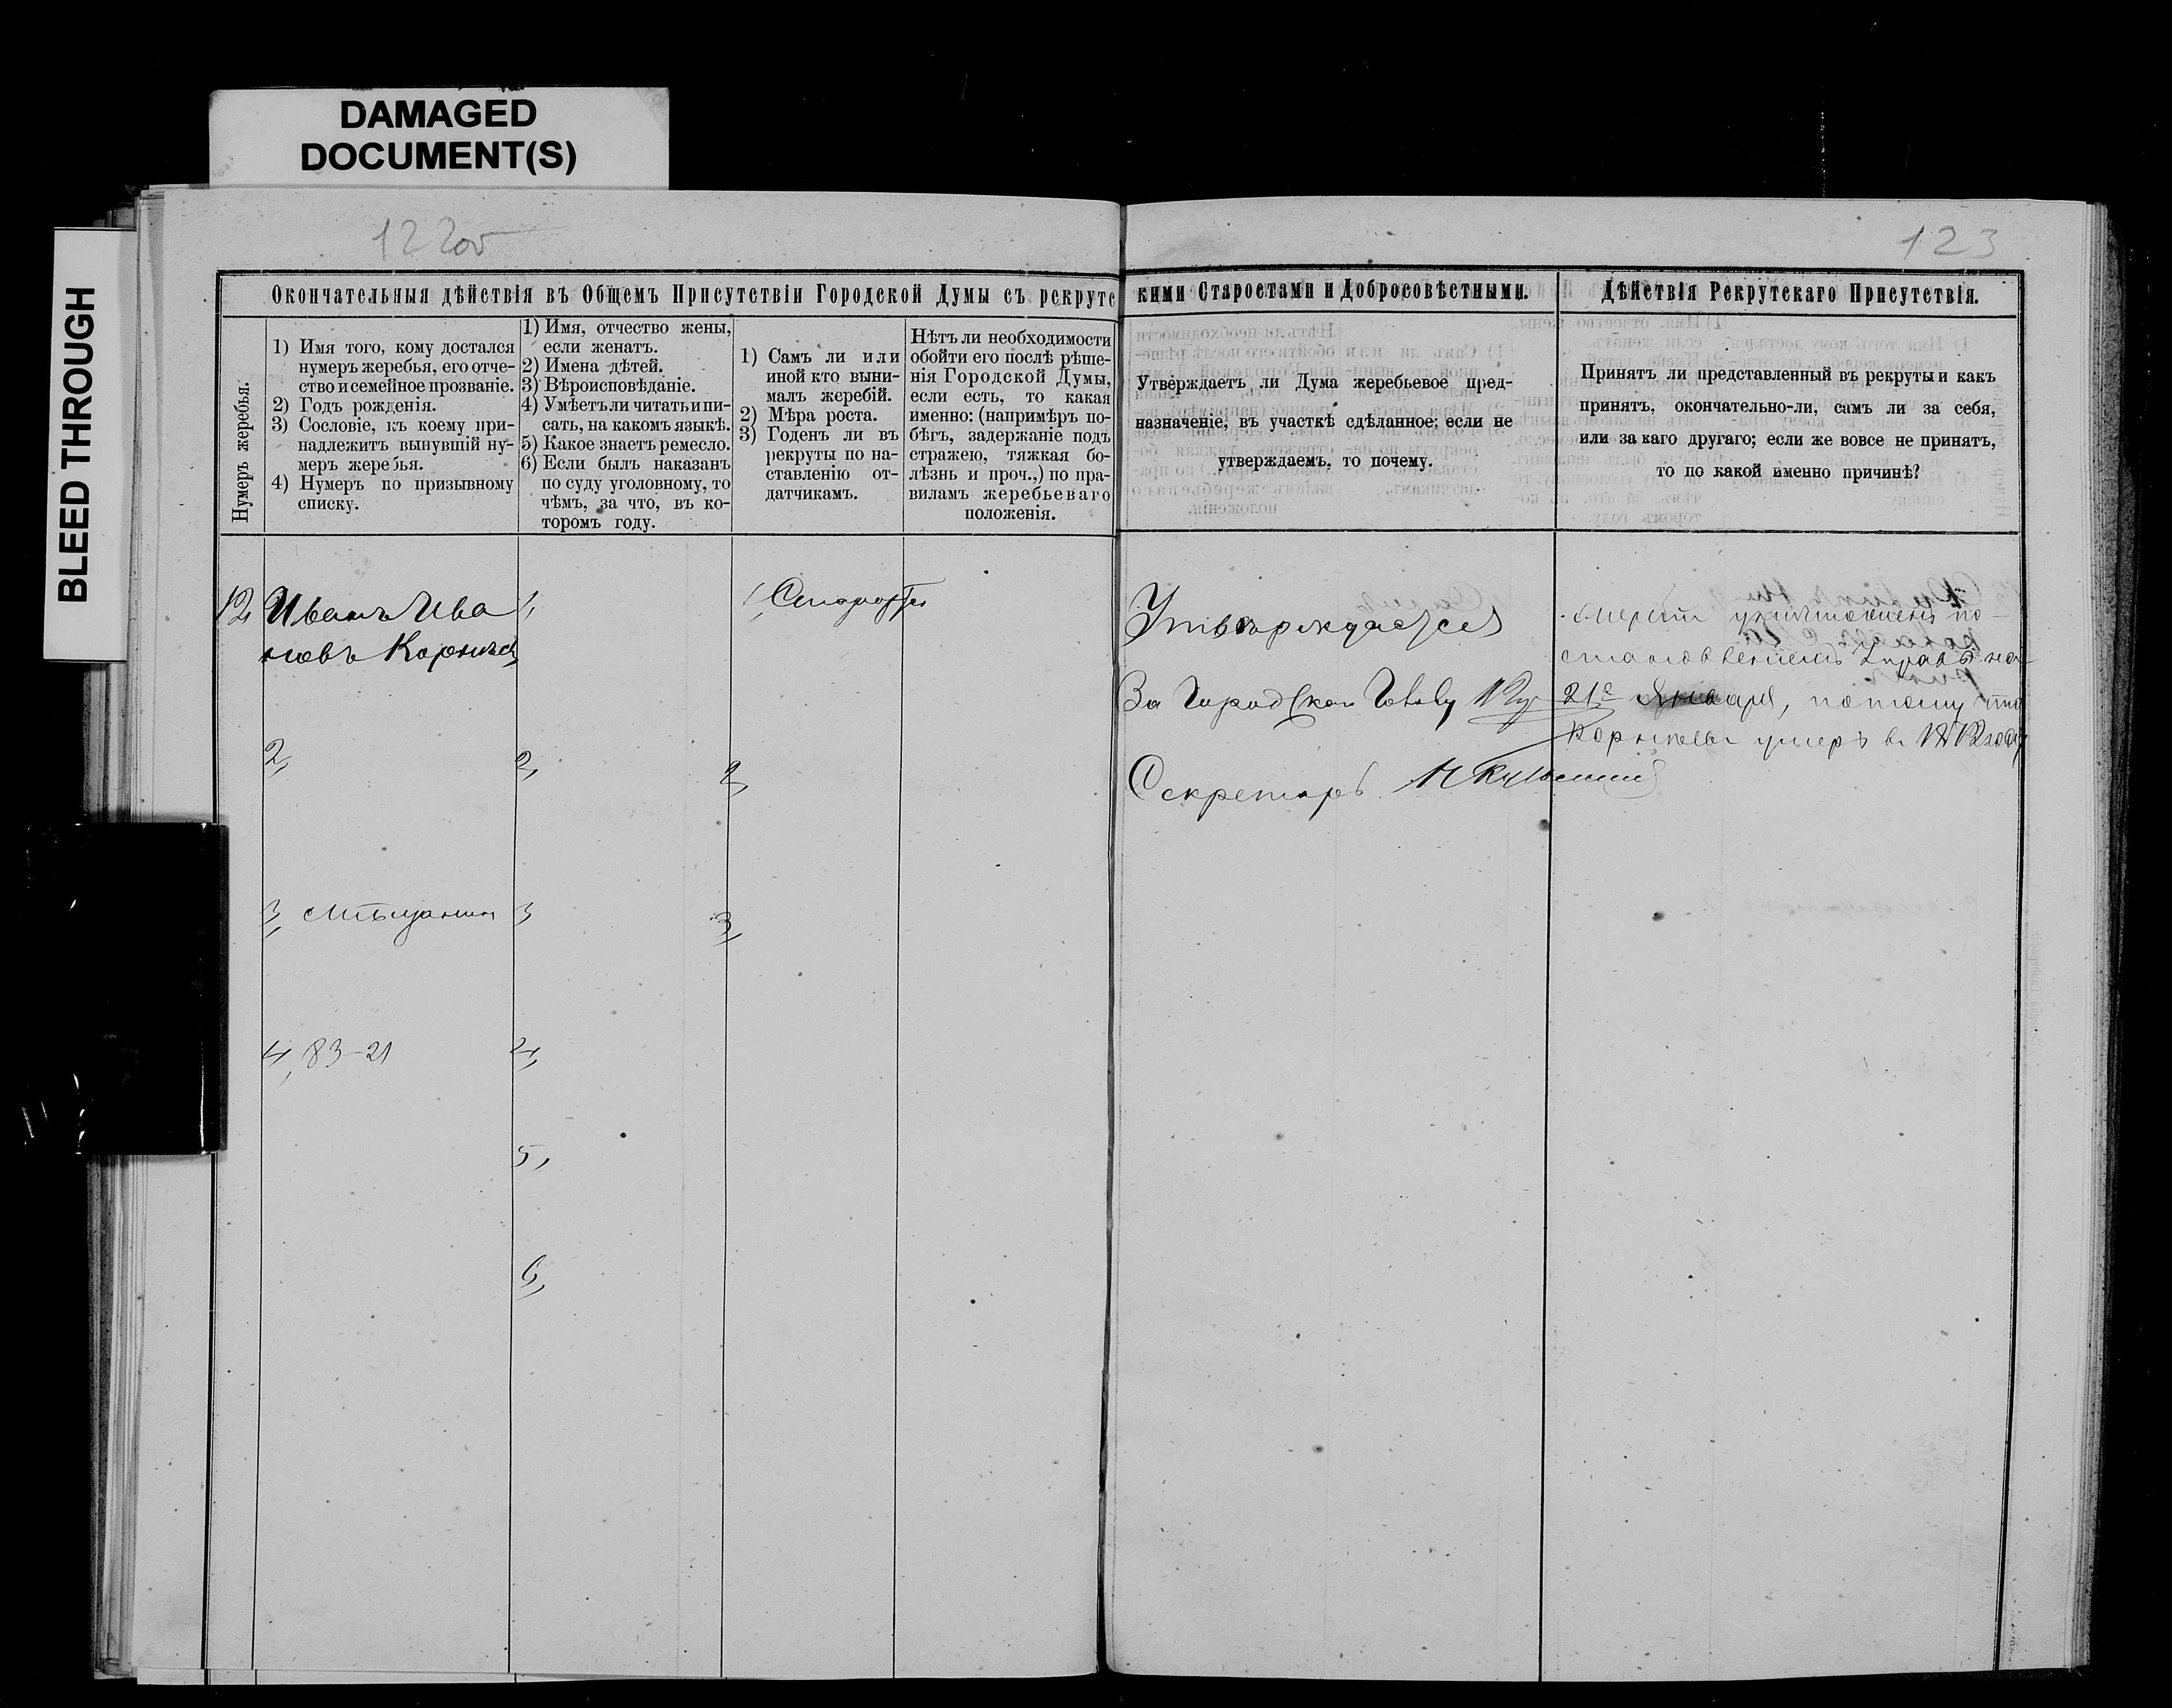 DAMAGED
DOCUMENT(S)
BLEED THROUGH
122об
123
Окончательныя дѣйствія въ Общемъ Присутствіи Городской Думы съ рекрутс
кими Старостами и Добросовѣстными.
Дѣйствія Рекрутскаго Присутствія.
Нумеръ жеребья.
1) Имя того, кому достался
нумеръ жеребья, его отче-
ство и семейное прозваніе.
2) Годъ рожденія.
3) Сословіе, къ коему при-
надлежитъ вынувшій ну-
меръ жеребья.
4) Нумеръ по призывному
списку.
1) Имя, отчество жены,
если женатъ.
2) Имена дѣтей.
3) Вѣроисповѣданіе.
4) Умѣетъ ли читать и пи-
сать, на какомъ языкѣ.
5) Какое знаетъ ремесло.
6) Если былъ наказанъ
по суду уголовному, то
чѣмъ, за что, въ ко-
торомъ году.
1) Самъ ли или
иной кто выни-
малъ жеребій.
2) Мѣра роста.
3) Годенъ ли въ
рекруты по на-
ставленію от-
датчикамъ.
Нѣтъ ли необходимости
обойти его послѣ рѣше-
нія Городской Думы,
если есть, то какая
именно: (напримѣръ по-
бѣгъ, задержаніе подъ
стражею, тяжкая бо-
лѣзнь и проч.,) по пра-
виламъ жеребьеваго
положенія.
Утверждаетъ ли Дума жеребьевое пред-
назначеніе, въ участкѣ сдѣланное; если не
утверждаемъ, то почему.
Принятъ ли представленный въ рекруты и какъ
принятъ, окончательно-ли, самъ ли за себя,
или за каго другаго; если же вовсе не принятъ,
то по какой именно причинѣ?
12 Иванъ Ива
новъ Корнѣевъ
2,
3, Мѣщанин
4, 83-21
1,
2,
3
4,
5,
6,
1, Староста
2,
3,
Утверждается
За Городской Голову
Секретарь
уничтоженъ по-
становленіемъ
21е Января, потому что
Корнѣевъ умеръ въ 1872 году